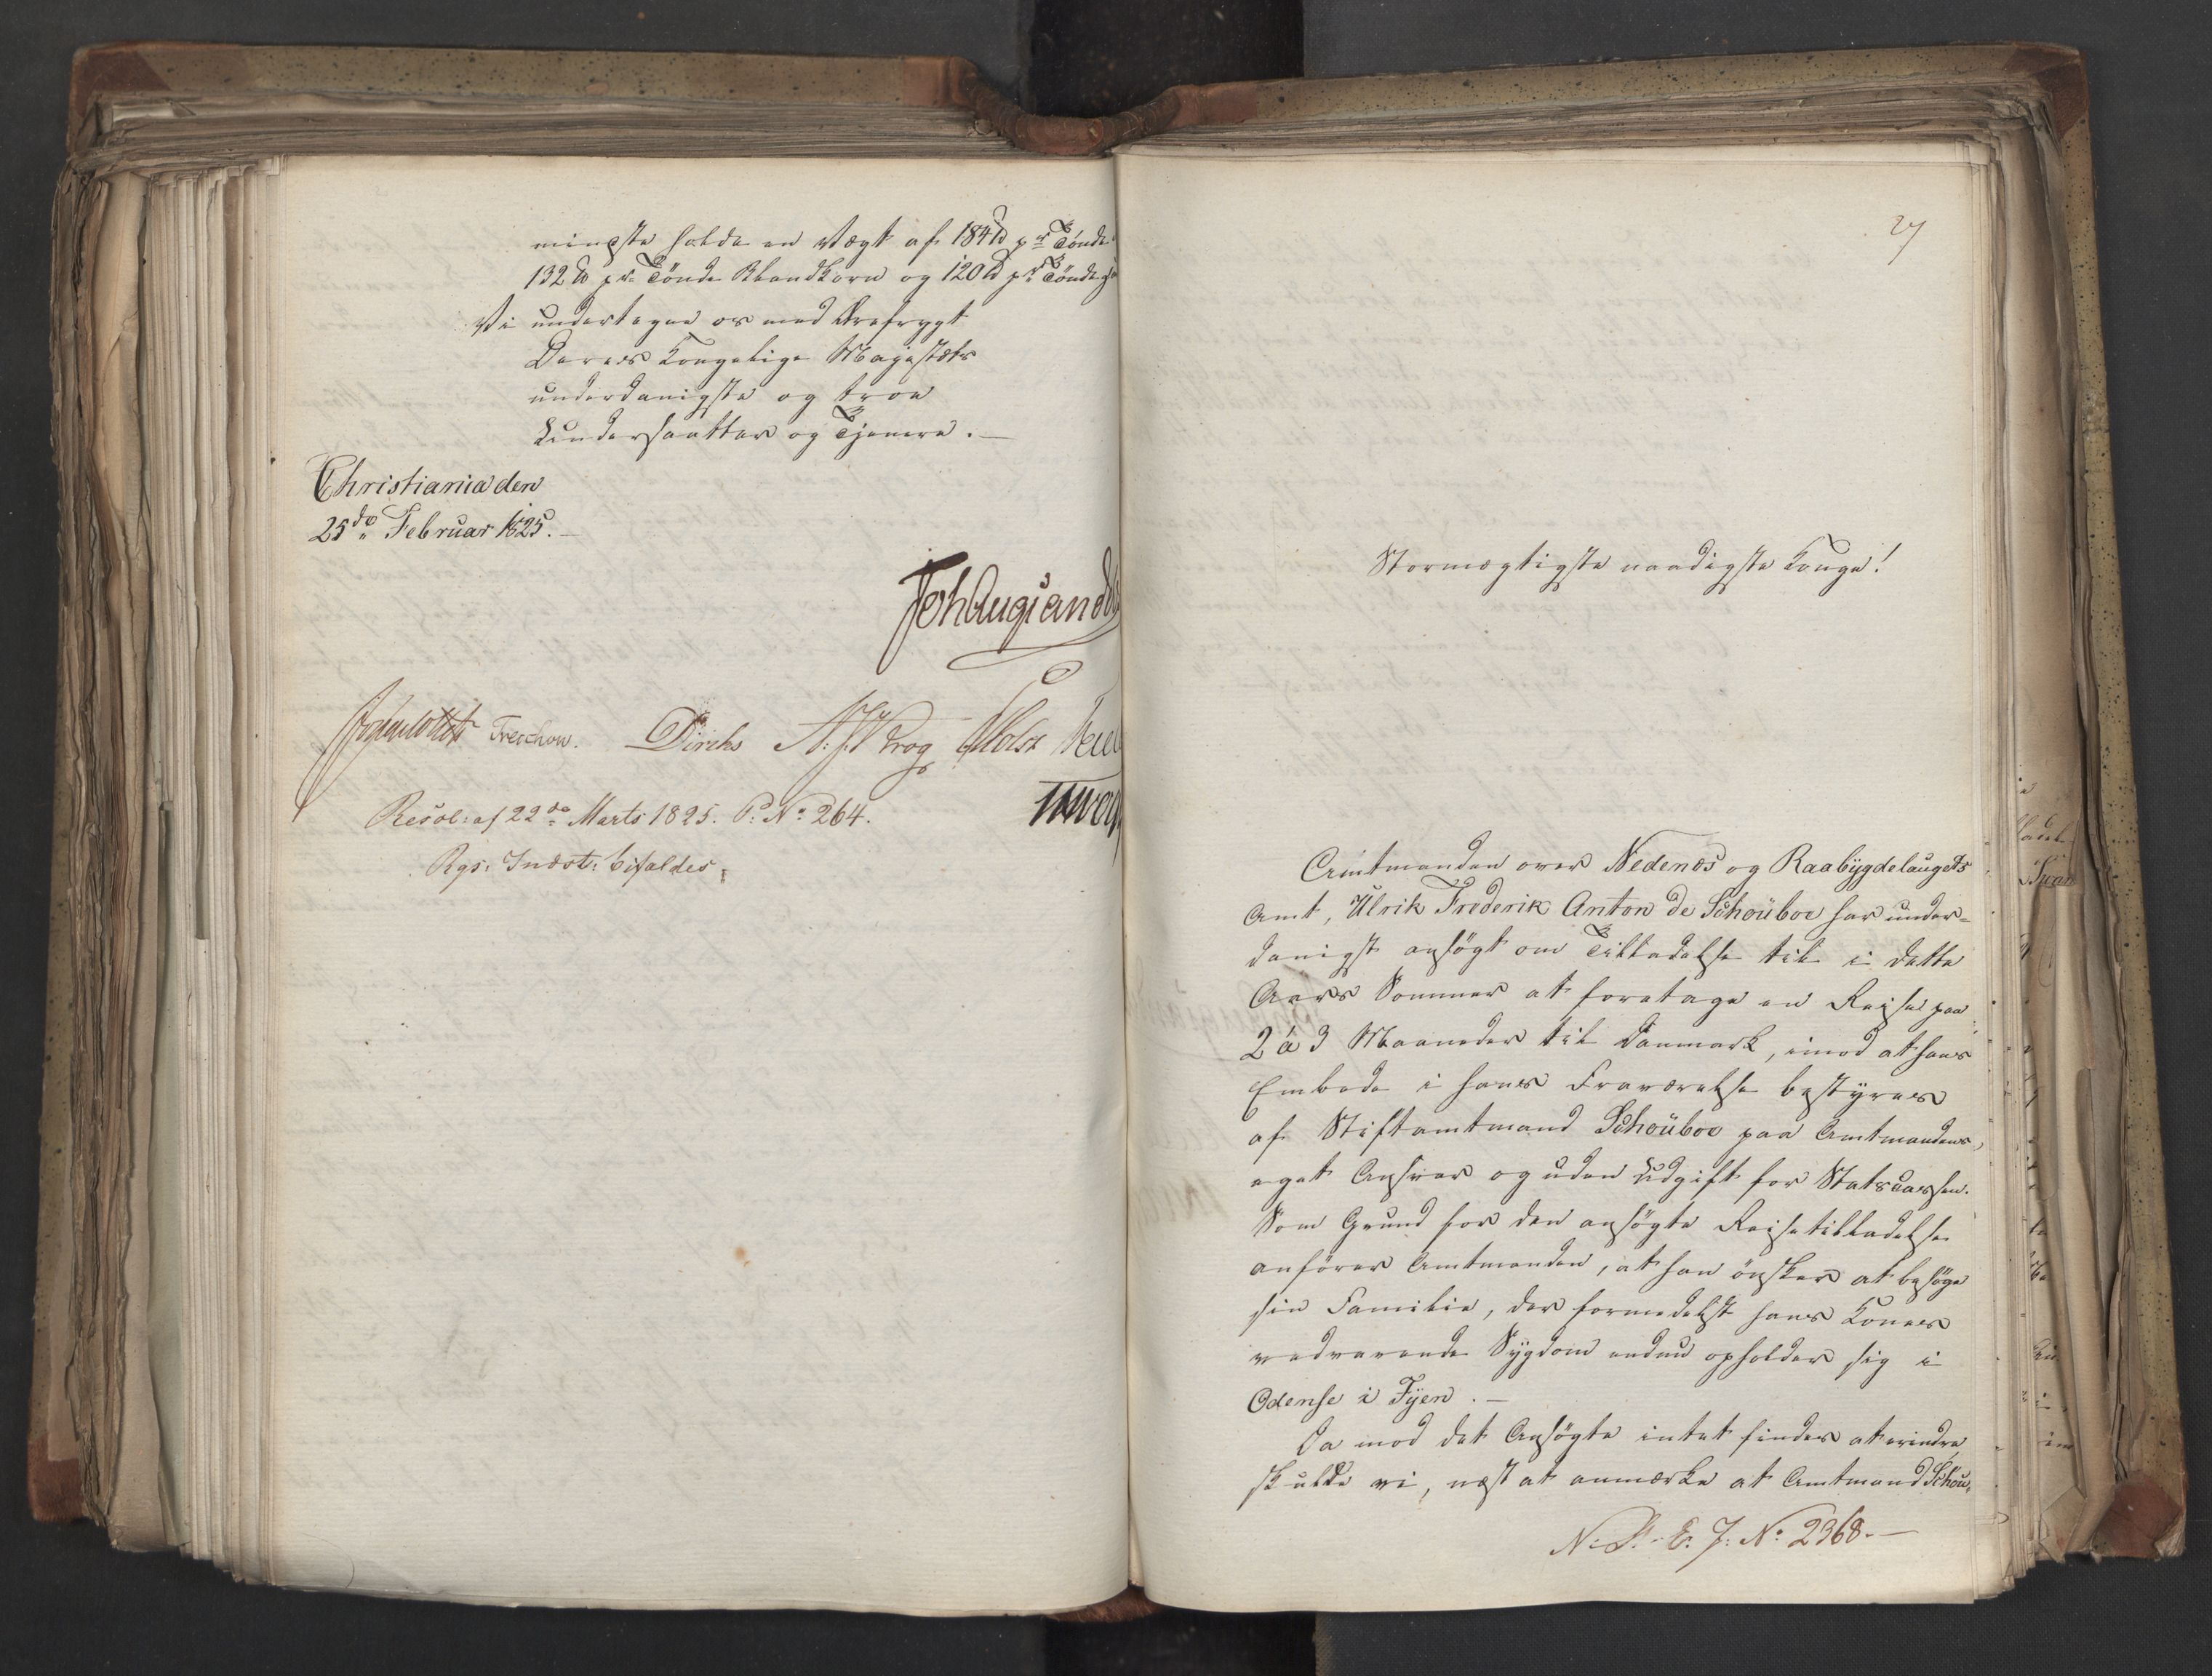 mindste holde en Vægt af 184 ℔ pr Tønde
132 ℔ pr Tønde Blandkorn og 120 ℔ pr Tønde
Vi undertegne os med Ærefrygt
Deres Kongelige Majestæts
underdanigste og troe
Undersaatter og Tjenere.—
Christiania den
25de Februar 1825.—
Joh Aug Sandels
Treschow. Diriks A: J: Krog Holst
Resol: af 22de Marts 1825. P: No 264.
Rgs: Indst: bifaldes.
27
Stormægtigste naadigste Konge!
Amtmanden over Nedenæs og Raabygdelaugets
Amt, Ulrik Frederik Anton de Schouboe har under-
danigst ansøgt om Tilladelse til i dette
Aars Sommer at foretage en Reise paa
2 á 3 Maaneder til Danmark, imod at hans
Embede i hans Fraværelse bestyres
af Stiftamtmand Schouboe paa Amtmandens
eget Ansvar og uden Udgift for Statscassen.
Som Grund for den ansøgte Reisetilladelse
anfører Amtmanden, at han ønsker at besøge
sin Familie, der formedelst hans Kones
vedvarende Sygdom endnu opholder sig i
Odense i Fyen.—
Da mod det Ansøgte intet findes at erindre
skulde vi, næst at anmærke at Amtmand Schou-
No 2368.—